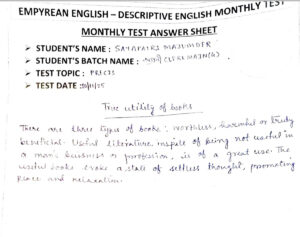 EMPYREAN ENGLISH – DESCRIPTIVE ENGLISH MONTHLY TEST
MONTHLY TEST ANSWER SHEET
➤ STUDENT'S NAME :
➤ STUDENT'S BATCH NAME :
➤ TEST TOPIC : PRECIS
➤ TEST DATE :
True utility of books
There are three types of books: worthless, harmful or truly
beneficial. Useful literature inspite of being not useful in
a man's business or profession, is of a great use. The
useful books evoke a state of selfless thought, promoting
peace and relaxation.